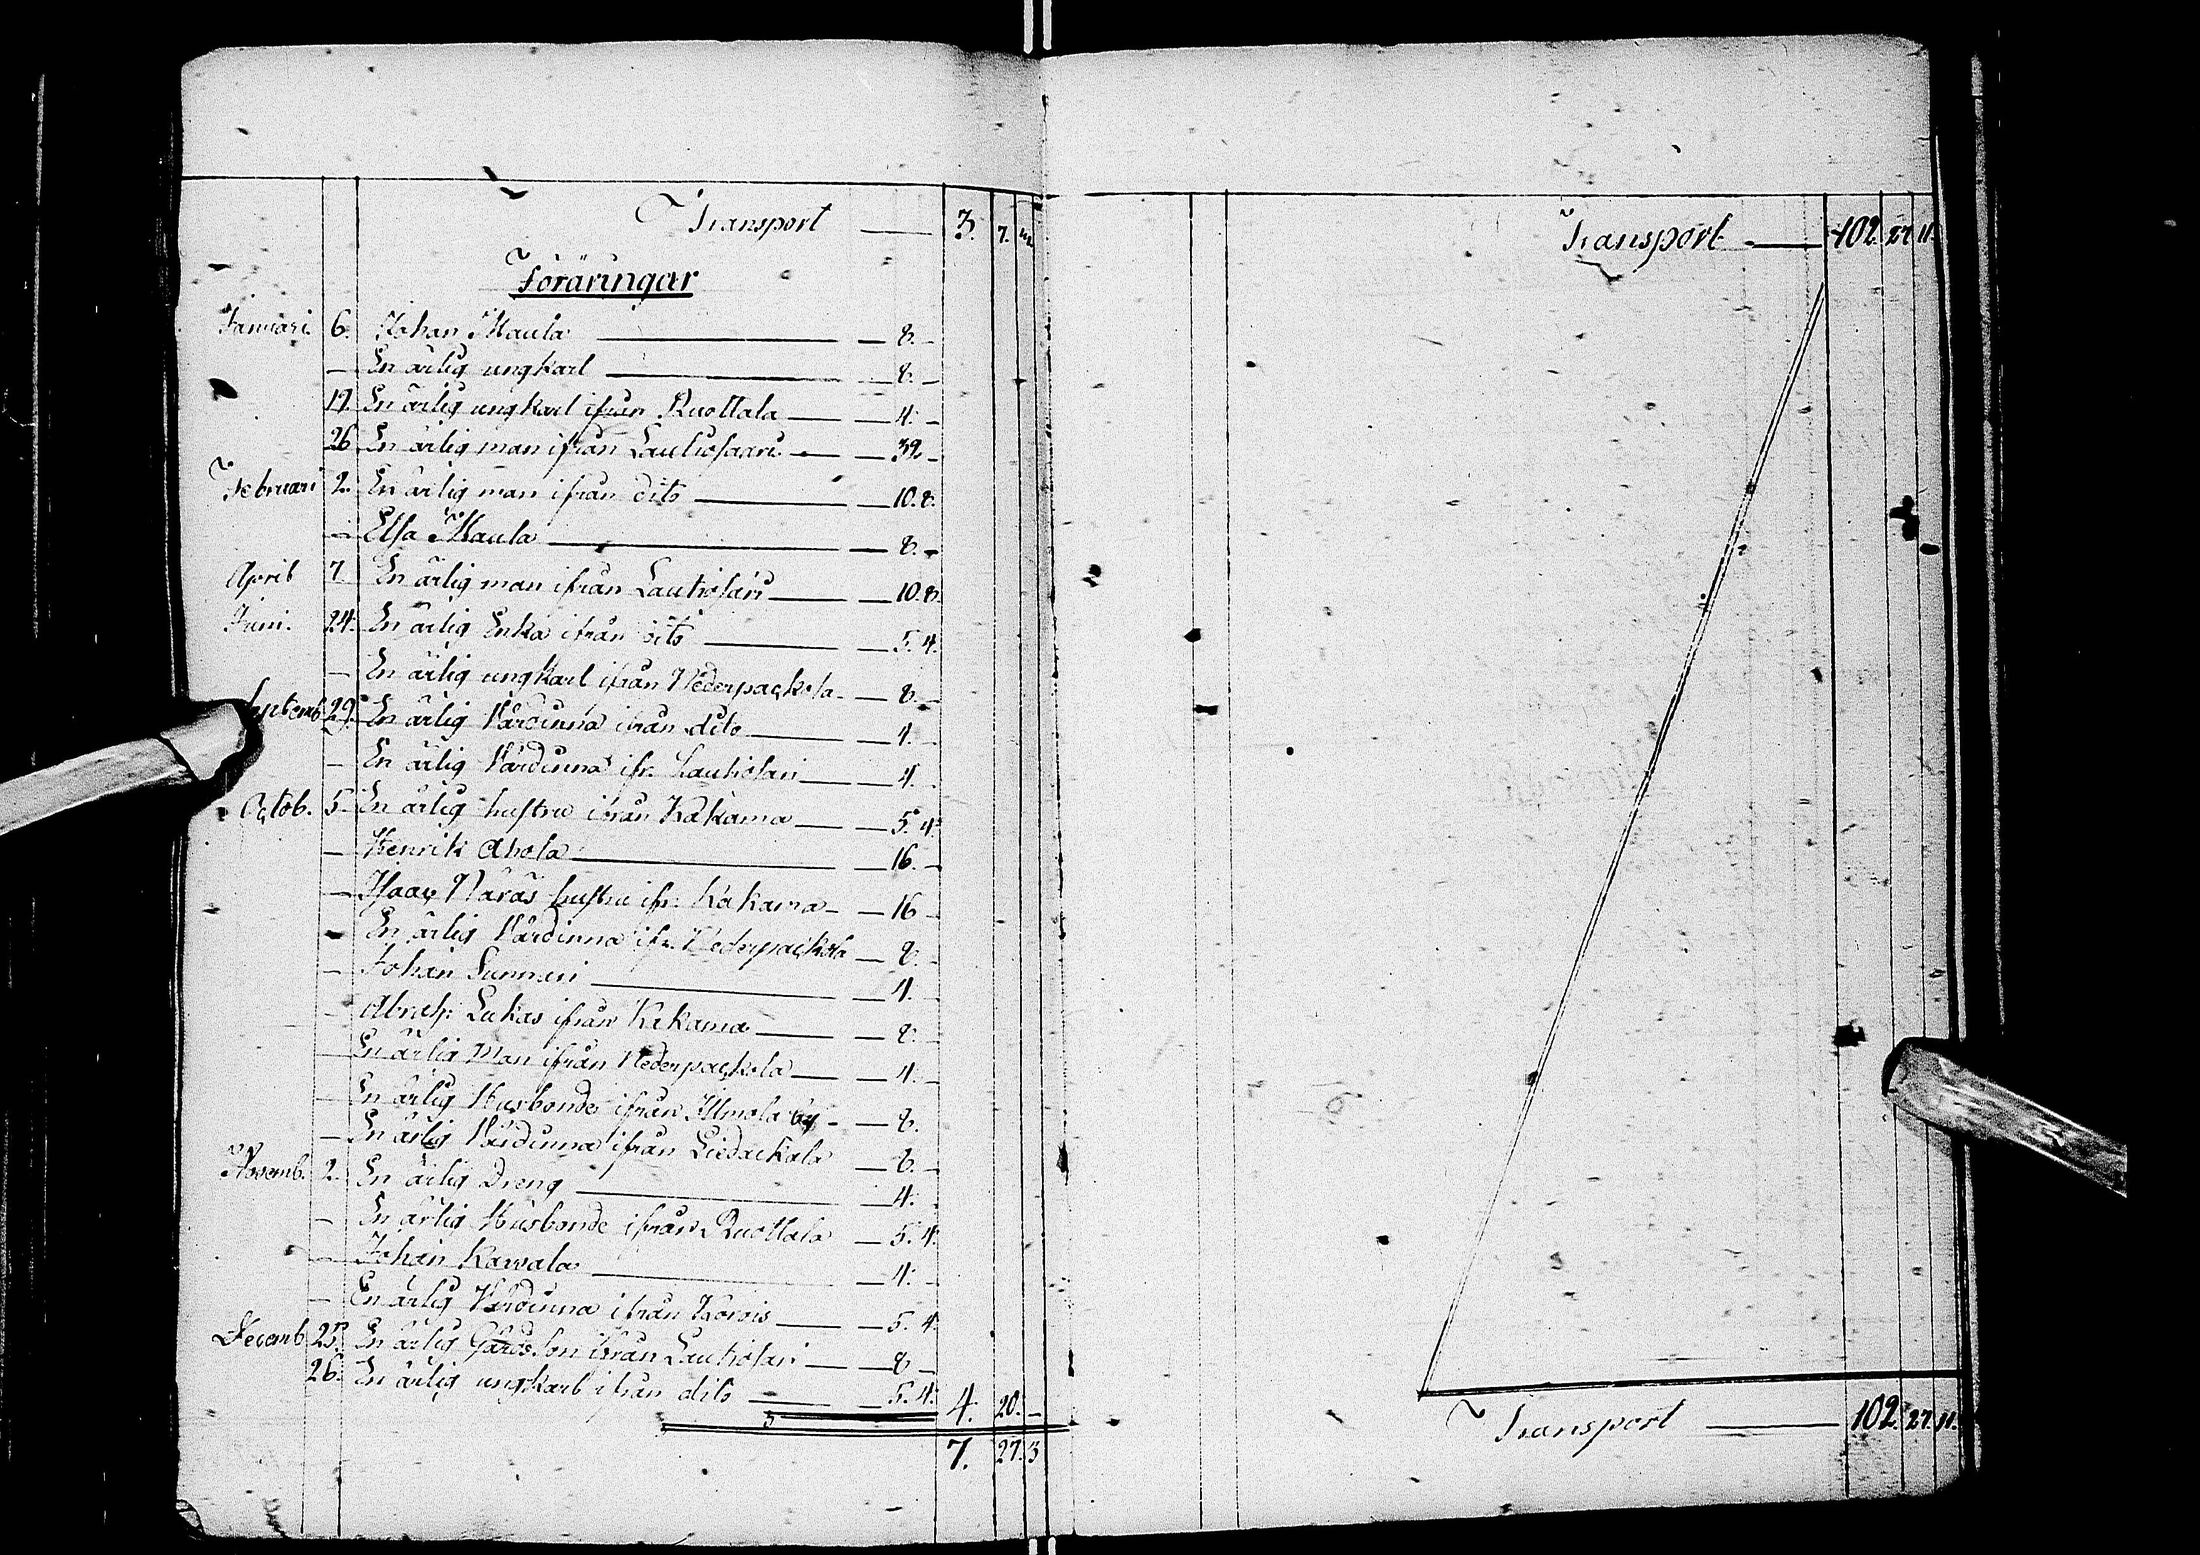 Transport — 3. 7. 3
Föräringar
Januari 6. Johan Kaula — 8. –
– En ärlig ungkarl — 8. –
19. En ärlig ungkarl ifrån Ruottala — 4. –
26 En ärlig man ifrån Lautiosaari — 32 –
Februari 2. En ärlig man ifrån dito — 10. 8.
– Elsa Kaula — 8. –
April 7 En ärlig man ifrån Lautiosari — 10. 8.
Juni. 24. En ärlig Enka ifrån dito — 5. 4.
– En ärlig ungkarl ifrån Nederpackola — 8. –
Septemb. 29. En ärlig Värdinna ifrån dito — 4. –
– En ärlig Värdinna ifr. Lautiosari — 4. –
Octob. 5. En ärlig hustru ifrån Kakama — 5. 4.
– Henrik Ahola — 16. –
– Isaac hustru ifr. Kakama — 16 –
– En ärlig Värdinna ifr. Nederpackola — 8. –
– Johan Summari — 4. –
– Abrah: Lukas ifrån Kakama — 8. –
– En ärlig Man ifrån Nederpackola — 4. –
– En ärlig Husbonde ifrån Ilmola by — 8.
– En ärlig Värdinna ifrån Liedackala — 8. –
Novemb. 2. En ärlig Dreng — 4. –
– En ärlig Husbonde ifrån Ruottala — 5. 4.
– Johan Kawala — 4. –
– En ärlig Värdinna ifrån Korois — 5. 4.
Decemb. 25. En ärlig Gårdsson ifrån Lautiosari — 8 –
26. En ärlig ungkarl ifrån dito — 5. 4. 4. 20. –
7. 27. 3
Transport — 102. 27. 11.
Transport — 102. 27. 11.